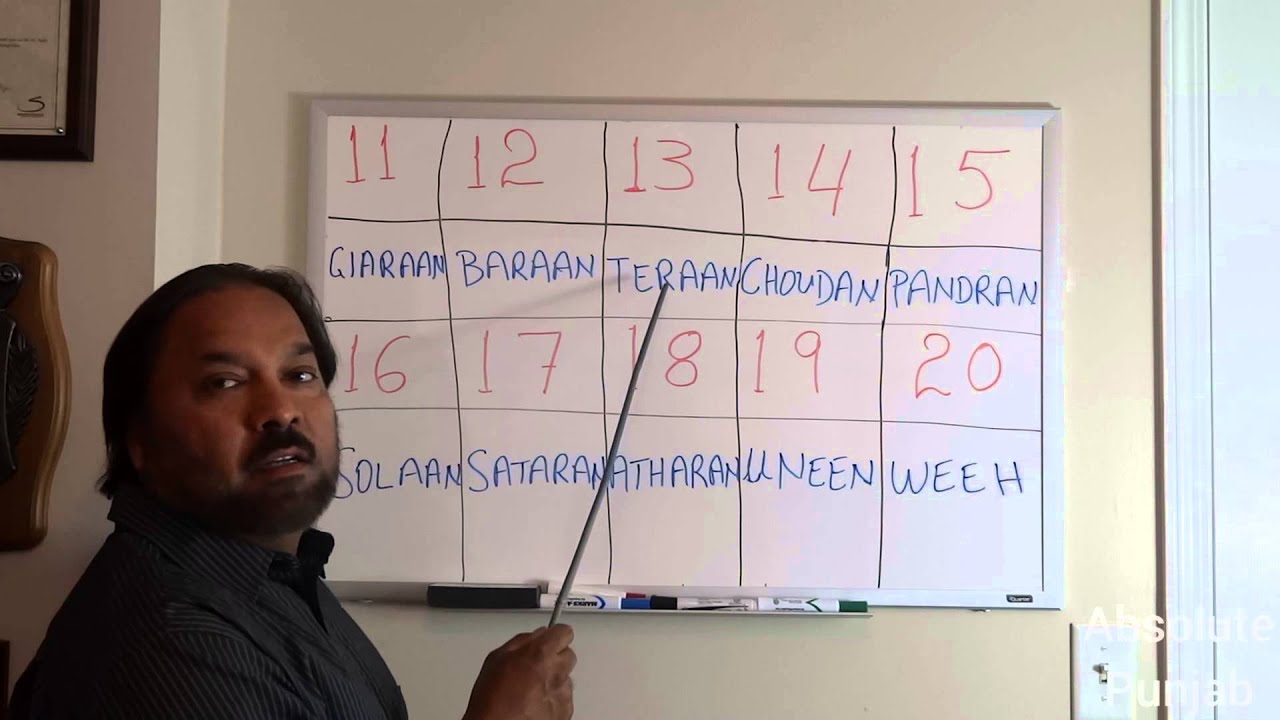 11 12 13 14 15
GIARAAN BARAAN TERAAN CHOUDAN PANDRAN
16 17 18 19 20
SOLAAN SATARAN ATHARAN UNEEN WEEH
Quartet
Absolute
Punjab